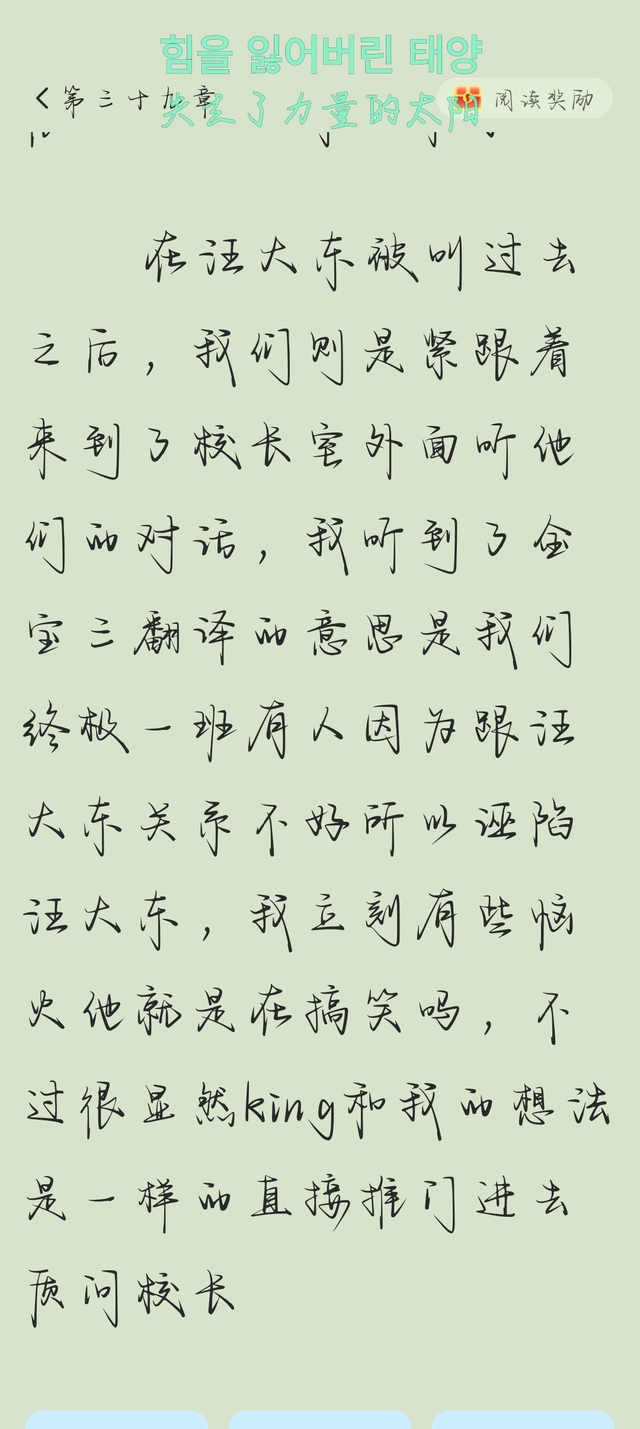 힘을 잃어버린 태양
第三十九章
失足了力量的太阳
阅读奖励
在汪大东被叫过去
之后，我们则是紧跟着
来到了校长室外面听他
们的对话，我听到了金
宝三翻译的意思是我们
终极一班有人因为跟汪
大东关系不好所以诬陷
汪大东，我立刻有些恼
火他就是在搞笑吗，不
过很显然king和我的想法
是一样的直接推门进去
质问校长